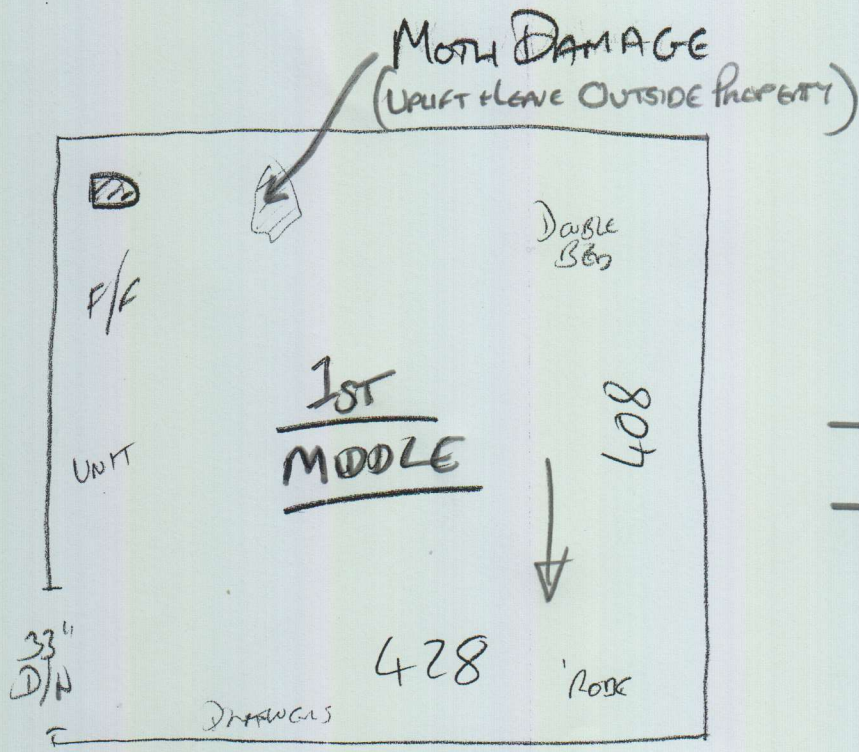 MOTH DAMAGE
(UPLIFT + LEAVE OUTSIDE PROPERTY)
DOUBLE
BED
F/F
1ST
MIDDLE
408
UNIT
33"
D/N
428
'ROBE
DRAWERS